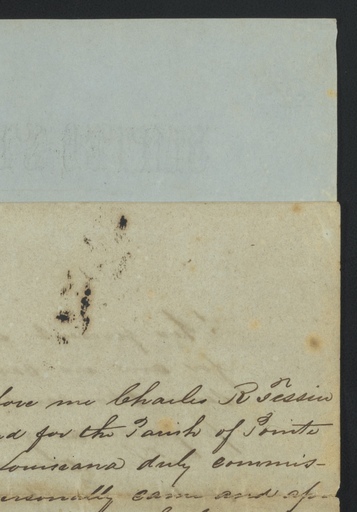 fore me Charles R
nd for the Parish of Pointe
Louisiana duly commis-
ersonally came and